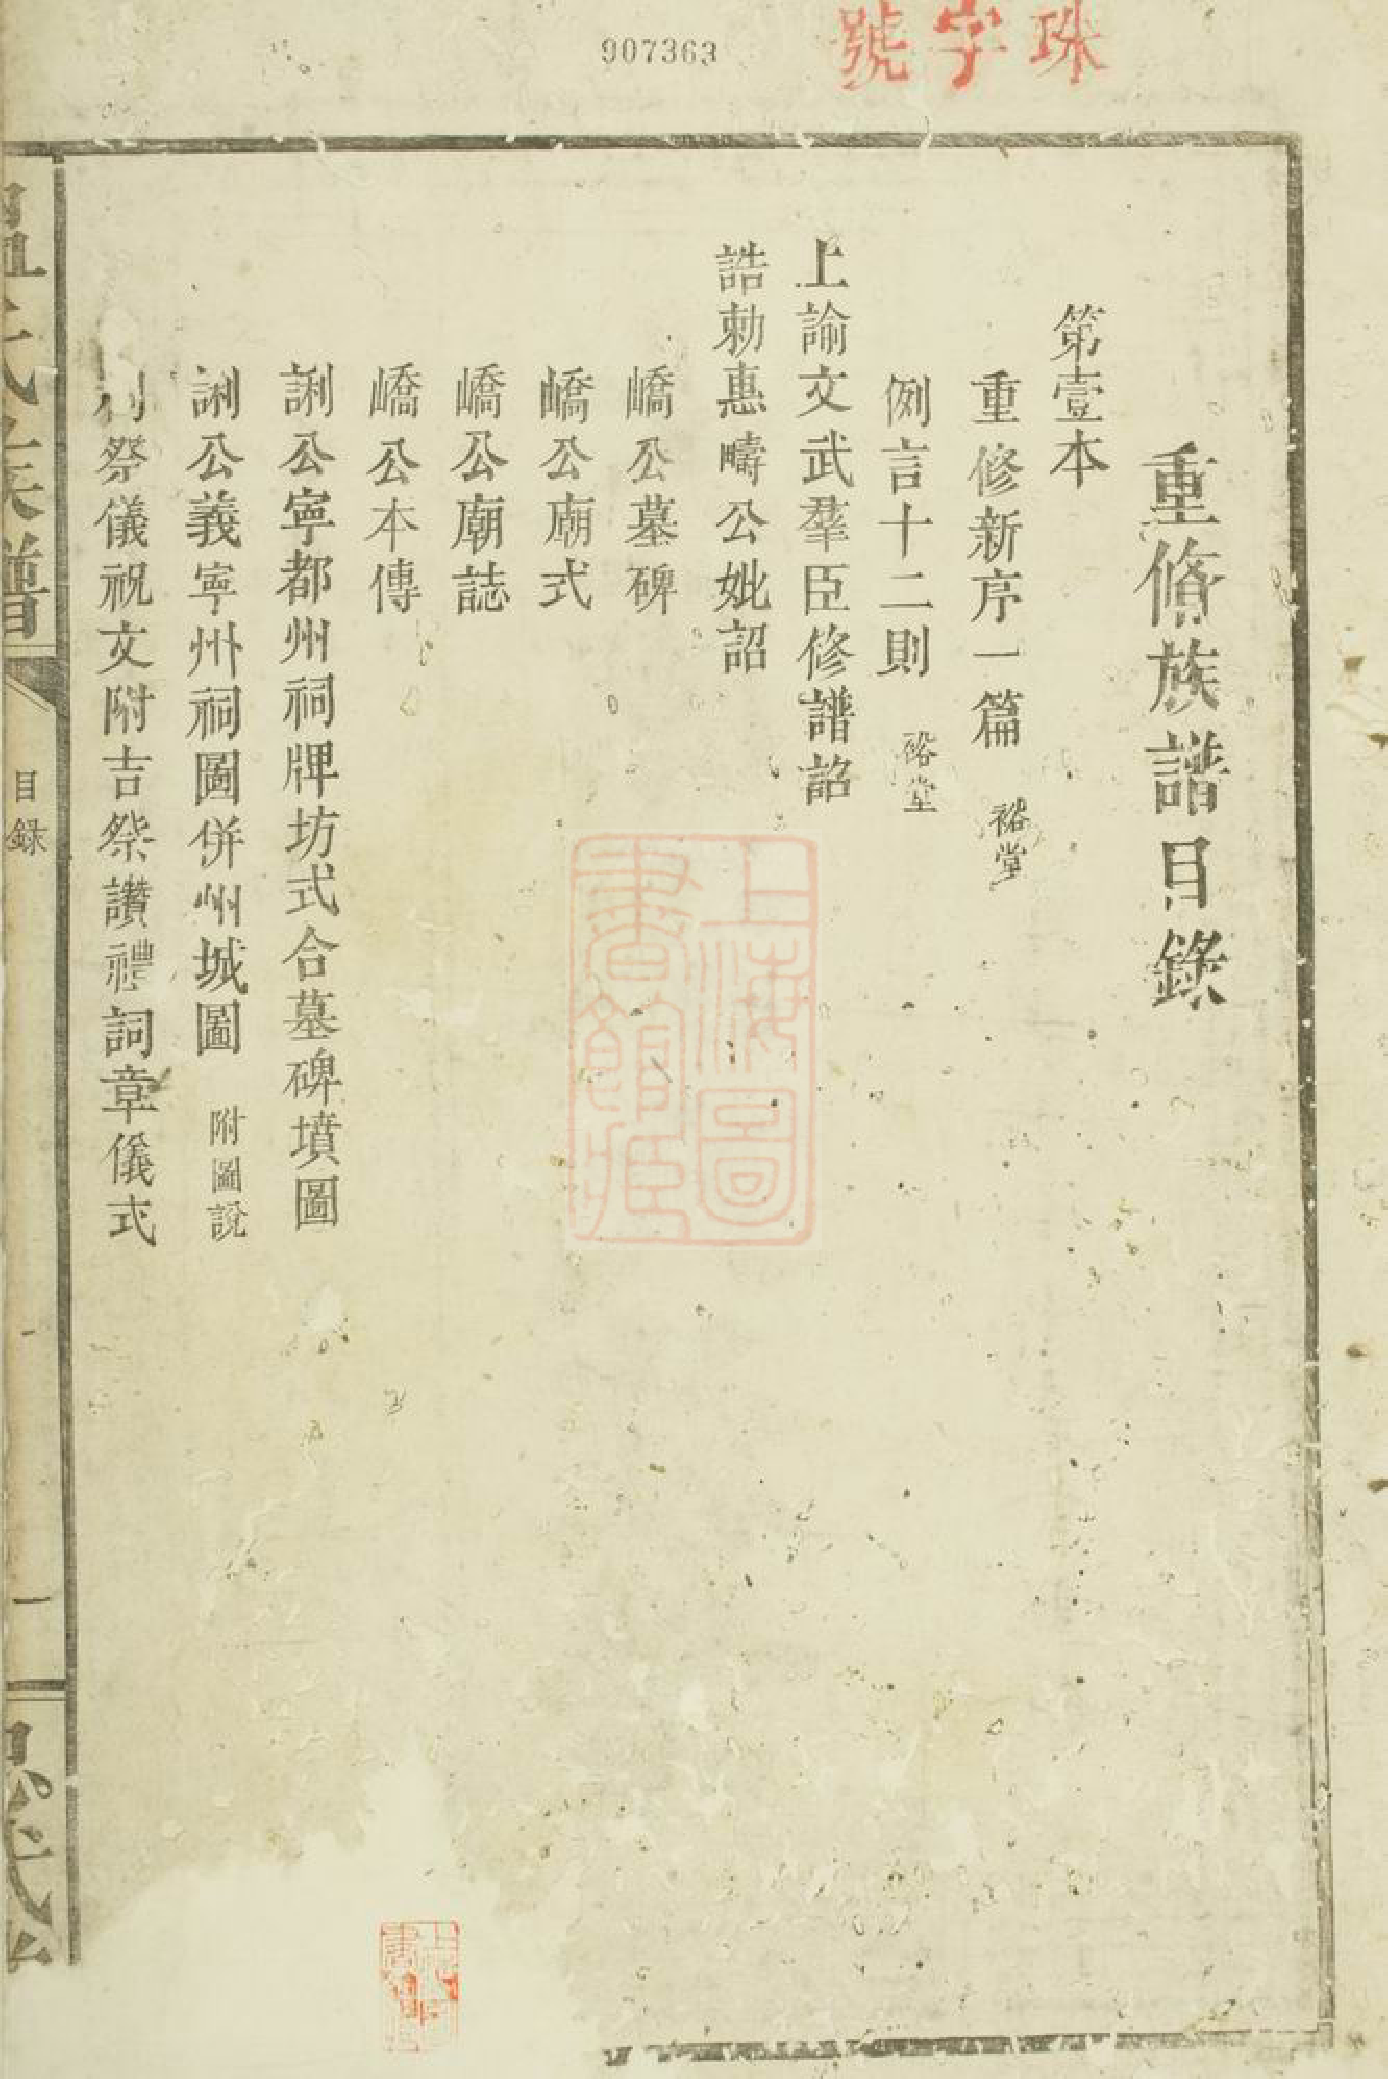 907363
珠字號
重脩族譜目錄
第壹本
重修新序一篇 裕堂
例言十二則 裕堂
上諭文武羣臣修譜詔
誥勅惠疇公妣詔
嶠公墓碑
嶠公廟式
嶠公廟誌
嶠公本傳
誗公寧都州祠牌坊式合墓碑墳圖
誗公義寧州祠圖併州城圖 附圖說
祭儀祝文附吉祭讚禮詞章儀式
氏族譜
目錄
一
上海圖書館藏